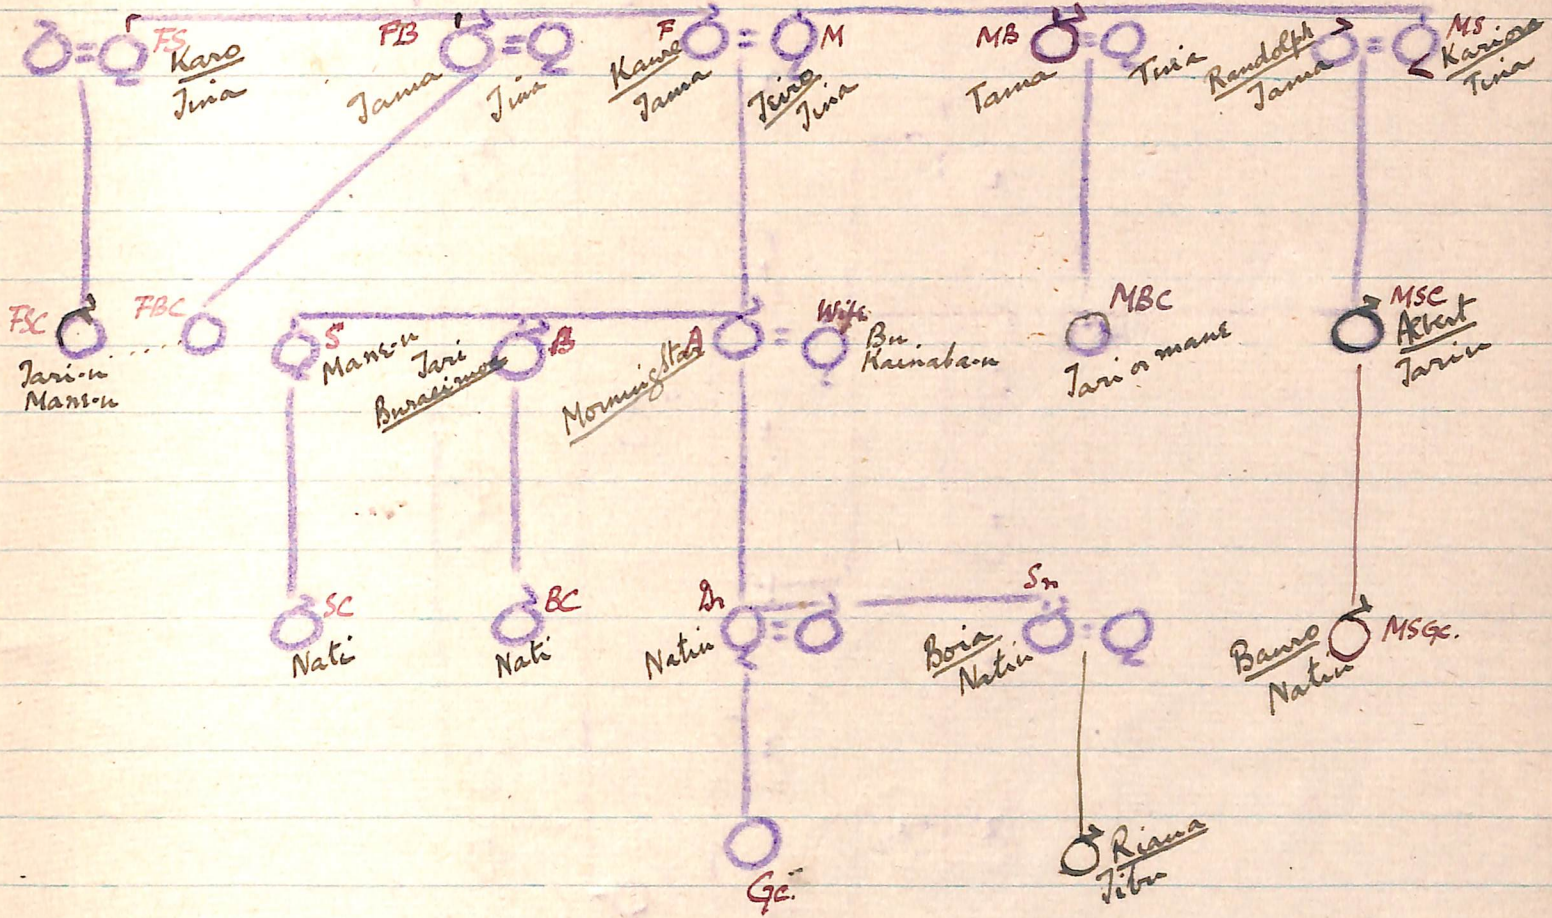 FS
Karo
Tina
FB
Tama
Tina
F
Kaure
Tama
M
Teiro
Tina
MB
Tama
Tina
Randolph
Tama
MS
Tina
FSC
Tari-u
Mane-u
FBC
S
Mane-u
B
Tari
A
MorningStar
Wife
Bu
Kainaba-u
MBC
Tari or mane
MSC
Albert
Tariu
SC
Nati
BC
Nati
Dr
Natiu
Sn
Boia
Natiu
Bauro
Natiu
MSGc.
Gc.
Riana
Tibu